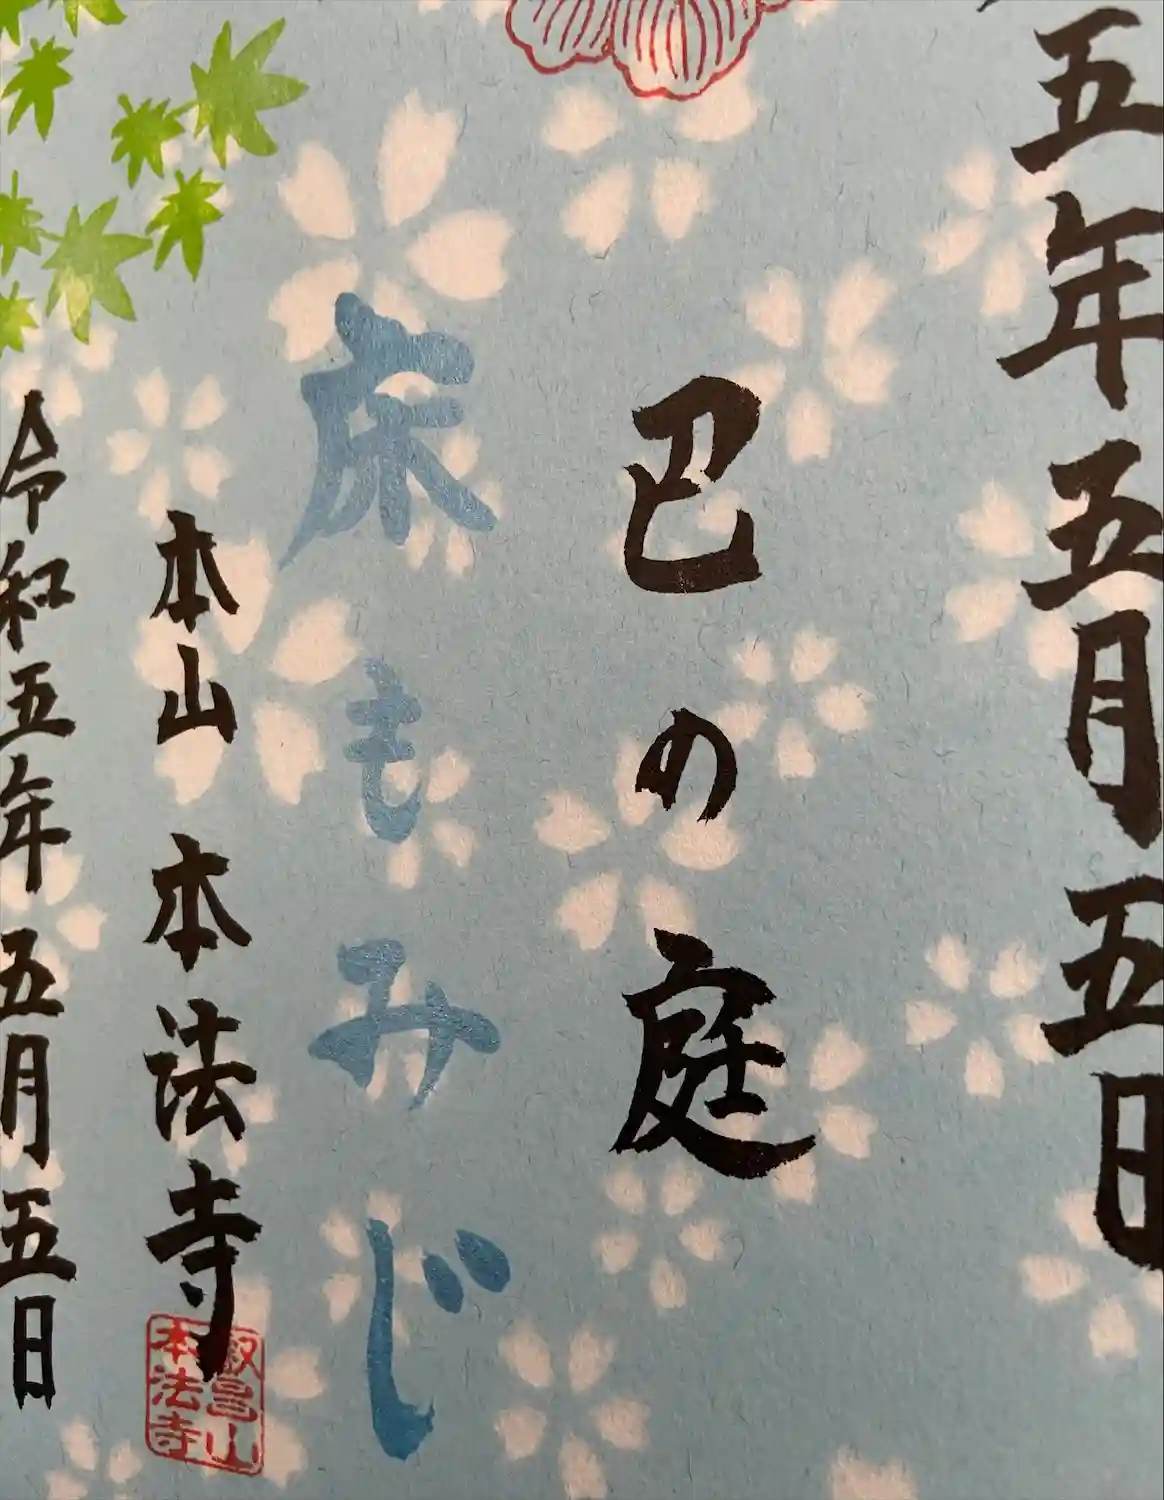 五年五月五日
巴の庭
床もみじ
本山 本法寺
令和五年五月五日
叡昌山
本法寺